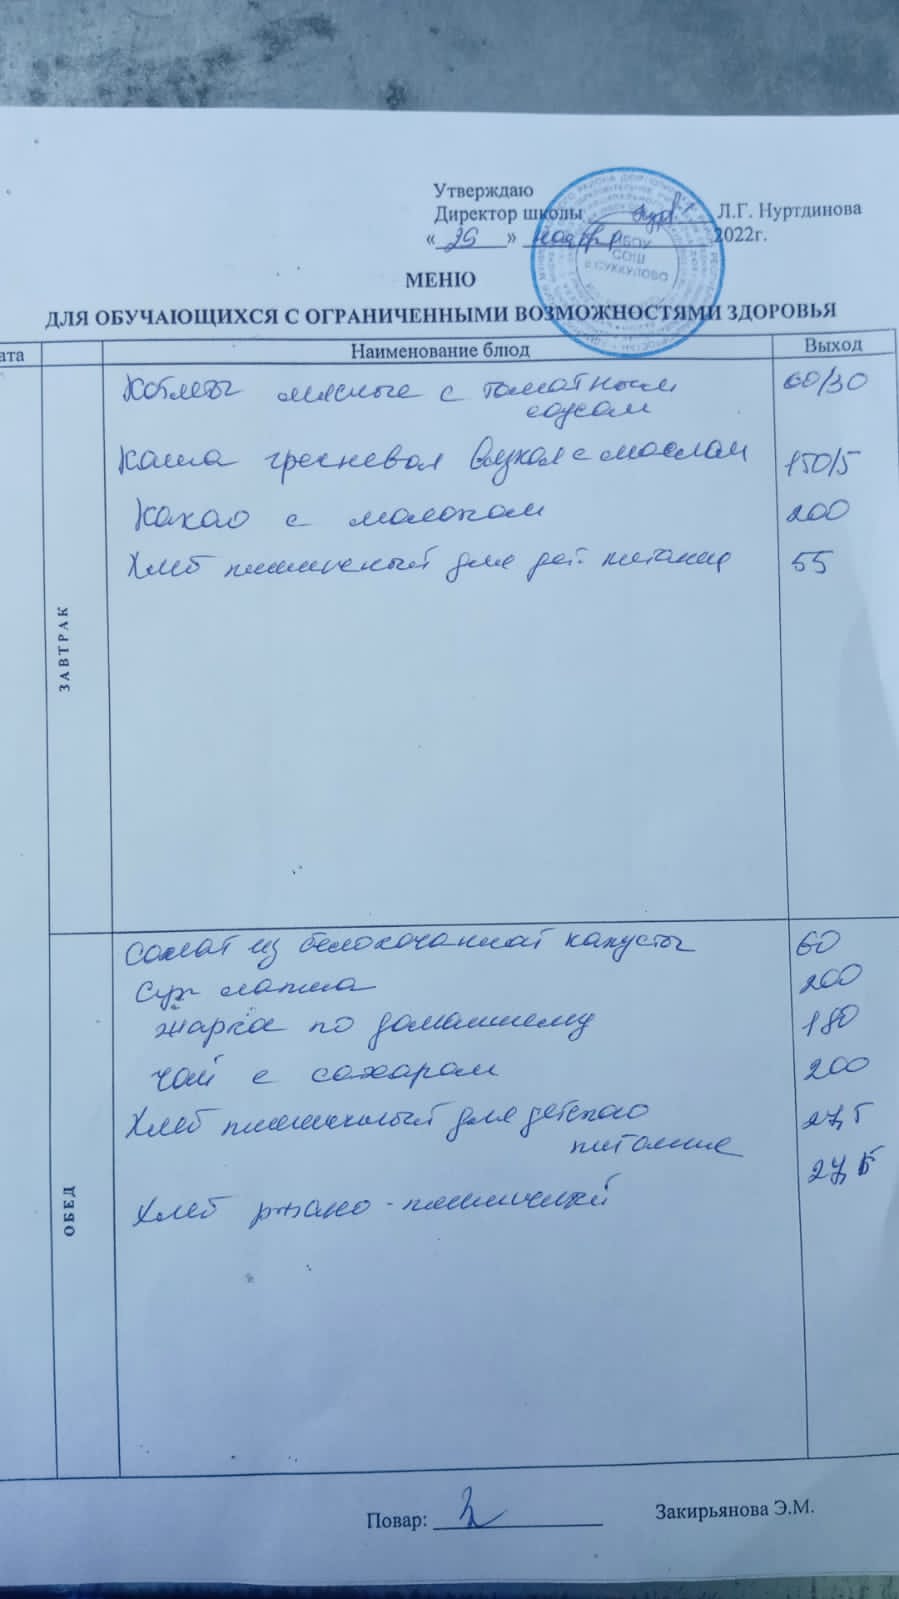 Утверждаю
Директор школы Л.Г. Нуртдинова
« 25 » ноября 2022г.
МБОУ
СОШ
с.СУККУЛОВО
МЕНЮ
ДЛЯ ОБУЧАЮЩИХСЯ С ОГРАНИЧЕННЫМИ ВОЗМОЖНОСТЯМИ ЗДОРОВЬЯ
ата Наименование блюд Выход
ЗАВТРАК
Котлеты мясные с томатным 60/30
соусом
Каша гречневая вязкая с маслом 150/5
Какао с молоком 200
Хлеб пшеничный для дет. питания 55
ОБЕД
Салат из белокочанной капусты 60
Суп лапша 200
Жаркое по домашнему 180
Чай с сахаром 200
Хлеб пшеничный для детского 27,5
питания
Хлеб ржано-пшеничный 27,5
Повар: Закирьянова Э.М.